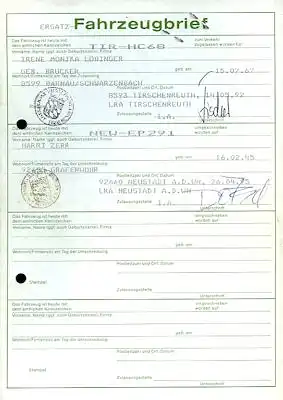 ERSATZ
Fahrzeugbrief
Das Fahrzeug ist heute mit
dem amtlichen Kennzeichen
TIR-HC68
zum Verkehr
zugelassen worden für
Vorname, Name (ggf. auch Geburtsname), Firma
IRENE MONIKA LÖHINGER
GEB. BRUCKER
geb. am
15.07.67
8599 BÄRNAU/SCHWARZENBACH
Postleitzahl und Ort, Datum
8593 TIRSCHENREUTH,
.92
LRA TIRSCHENREUTH
I.A.
Unterschrift
Das Fahrzeug ist heute mit
dem amtlichen Kennzeichen
NEW-EP291
umgeschrieben
worden auf
Vorname, Name (ggf. auch Geburtsname), Firma
HARRI ZERR
geb. am
16.02.45
Wohnort/Firmensitz am Tag der Umschreibung
92655 GRAFENWÖHR
Postleitzahl und Ort, Datum
92660 NEUSTADT A.D.WN,
LRA NEUSTADT A.D.WN
I.A.
Unterschrift
Das Fahrzeug ist heute mit
dem amtlichen Kennzeichen
umgeschrieben
worden auf
Vorname, Name (ggf. auch Geburtsname), Firma
geb. am
Wohnort/Firmensitz am Tag der Umschreibung
Postleitzahl und Ort, Datum
Stempel
Zulassungsstelle
Unterschrift
Das Fahrzeug ist heute mit
dem amtlichen Kennzeichen
umgeschrieben
worden auf
Vorname, Name (ggf. auch Geburtsname), Firma
geb. am
Wohnort/Firmensitz am Tag der Umschreibung
Postleitzahl und Ort, Datum
Stempel
Zulassungsstelle
Unterschrift